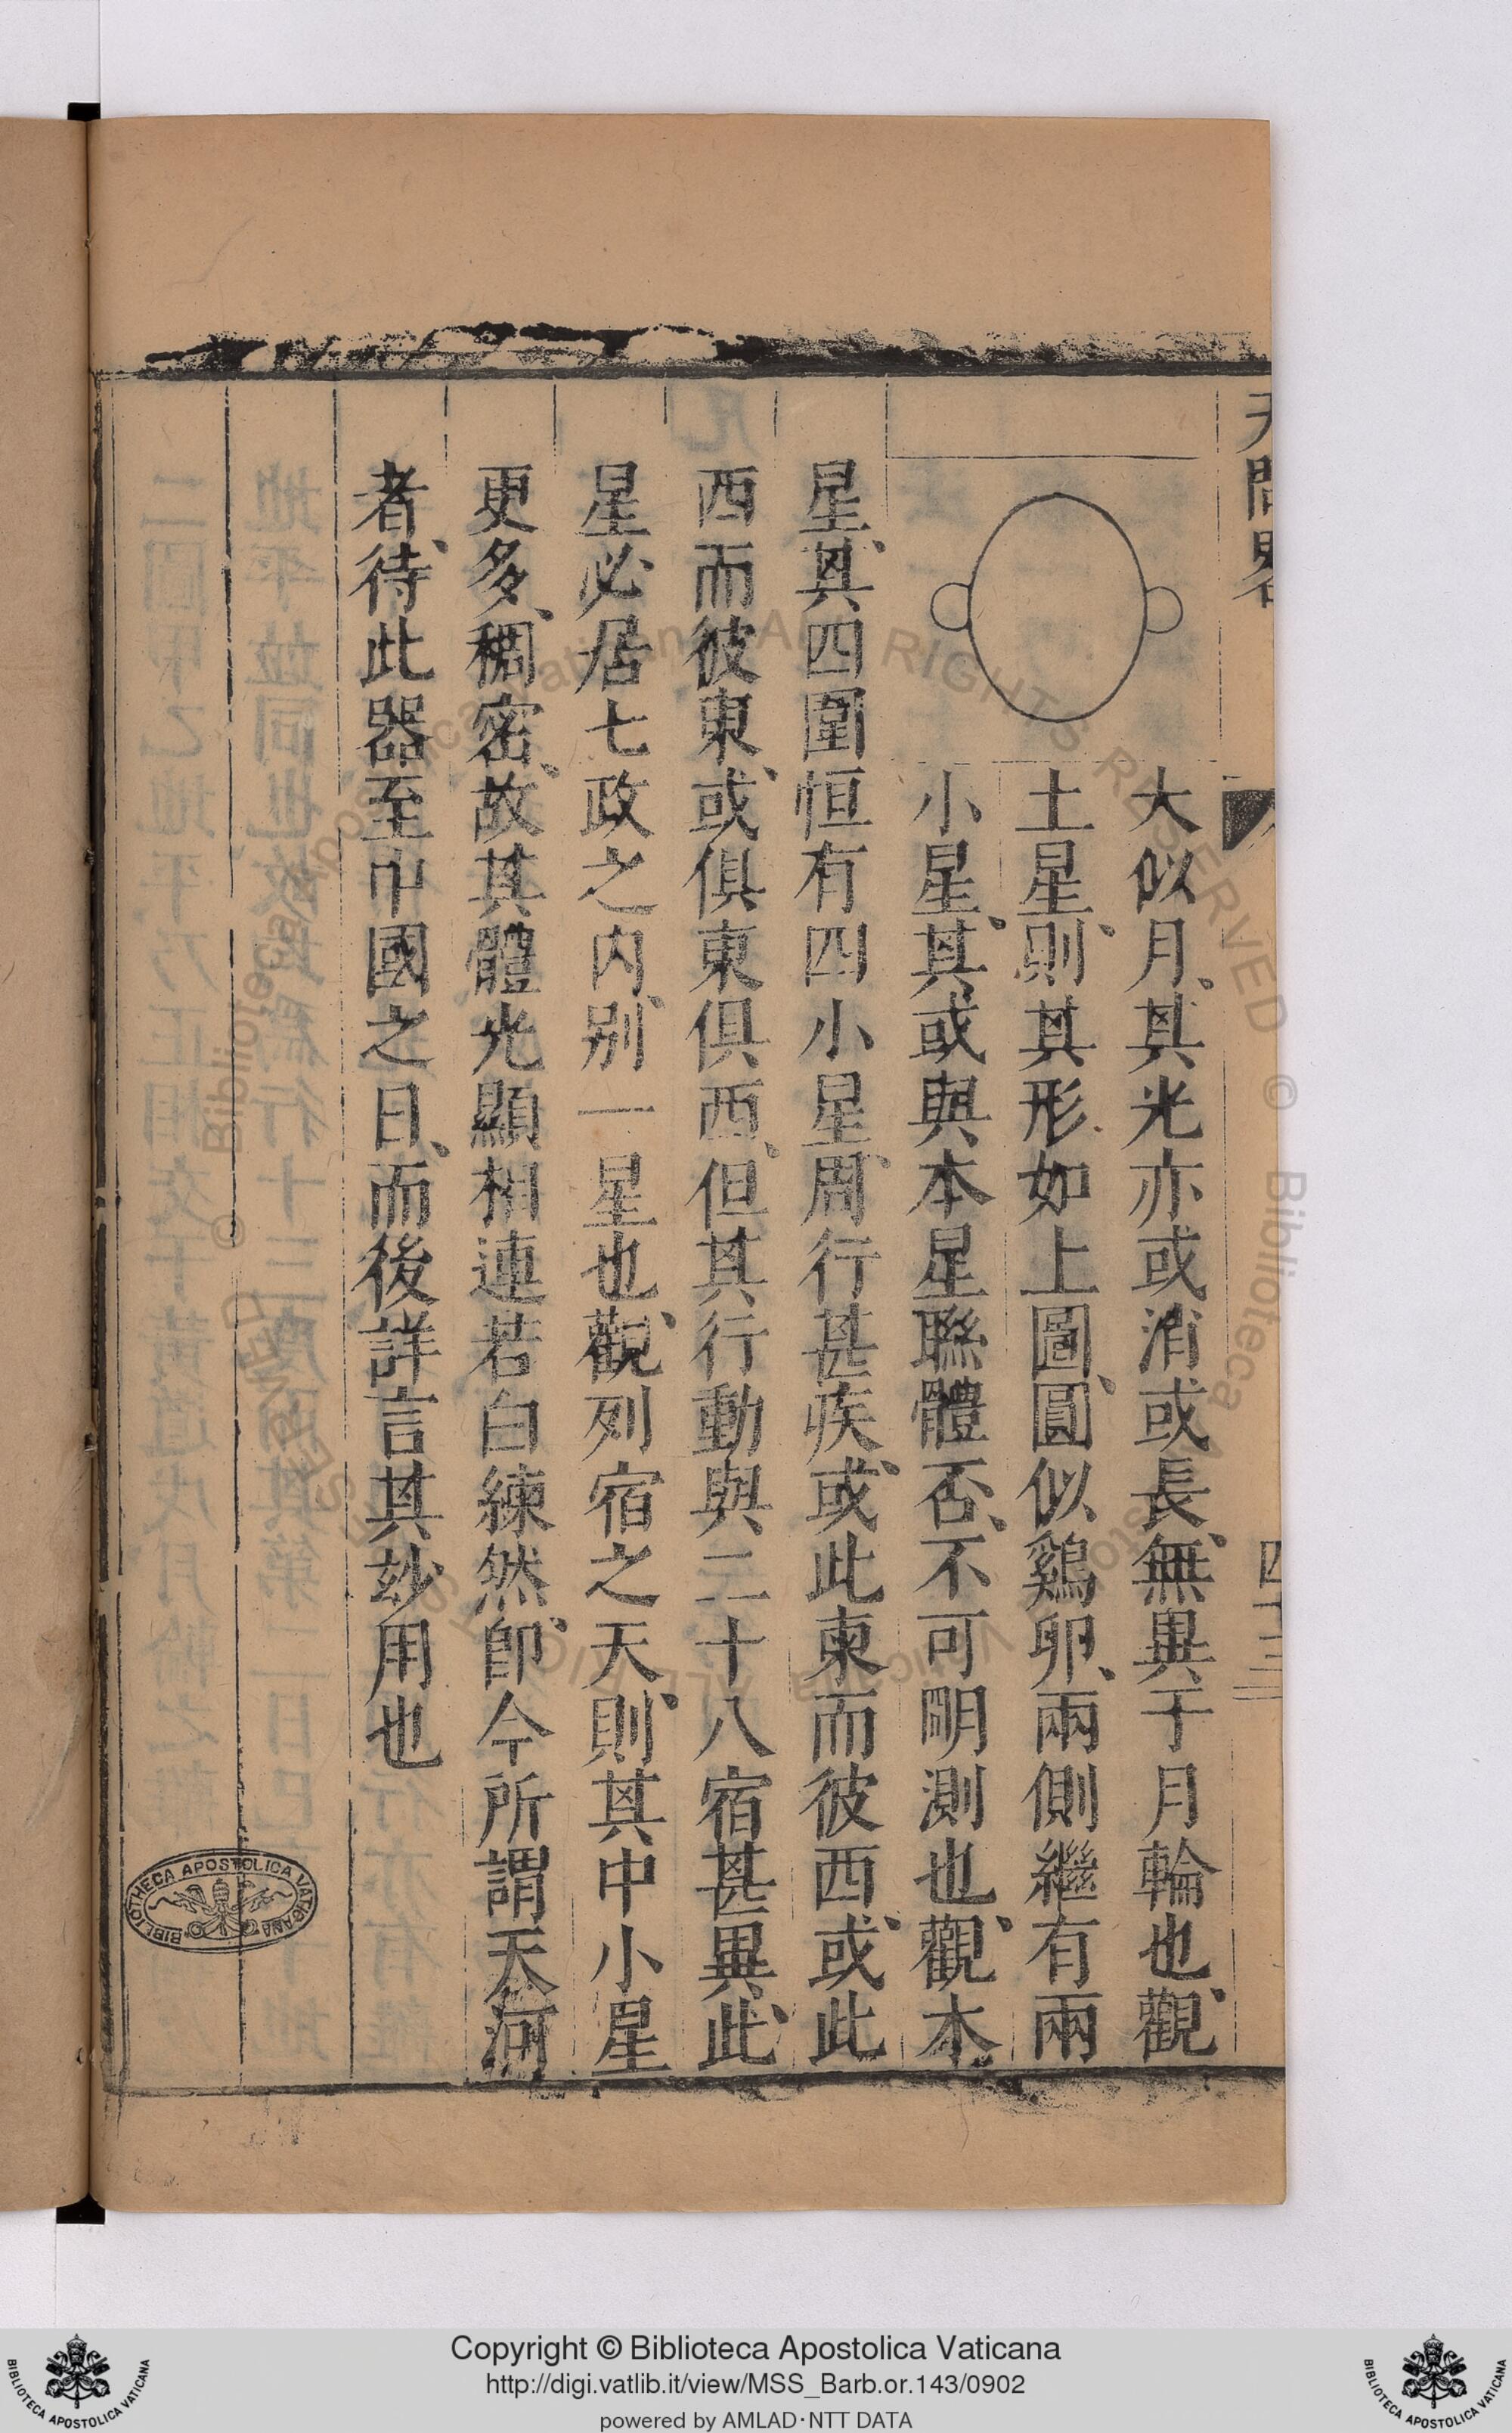 天問畧
四十三
大似月、其光亦或消或長、無異于月輪也、觀
土星、則其形如上圖、圓似鷄卵、兩側繼有兩
小星、其或與本星聯體否、不可明測也、觀木
星、其四圍恒有四小星、周行甚疾、或此東而彼西、或此
西而彼東、或俱東俱西、但其行動與二十八宿甚異、此
星必居七政之内、别一星也、觀列宿之天、則其中小星
更多、稠密、故其體光顯相連若白練然、卽今所謂天河
者、待此器至中國之日、而後詳言其玅用也
BIBLIOTHECA APOSTOLICA VATICANA
Copyright © Biblioteca Apostolica Vaticana
http://digi.vatlib.it/view/MSS_Barb.or.143/0902
powered by AMLAD·NTT DATA
BIBLIOTECA APOSTOLICA VATICANA
BIBLIOTECA APOSTOLICA VATICANA